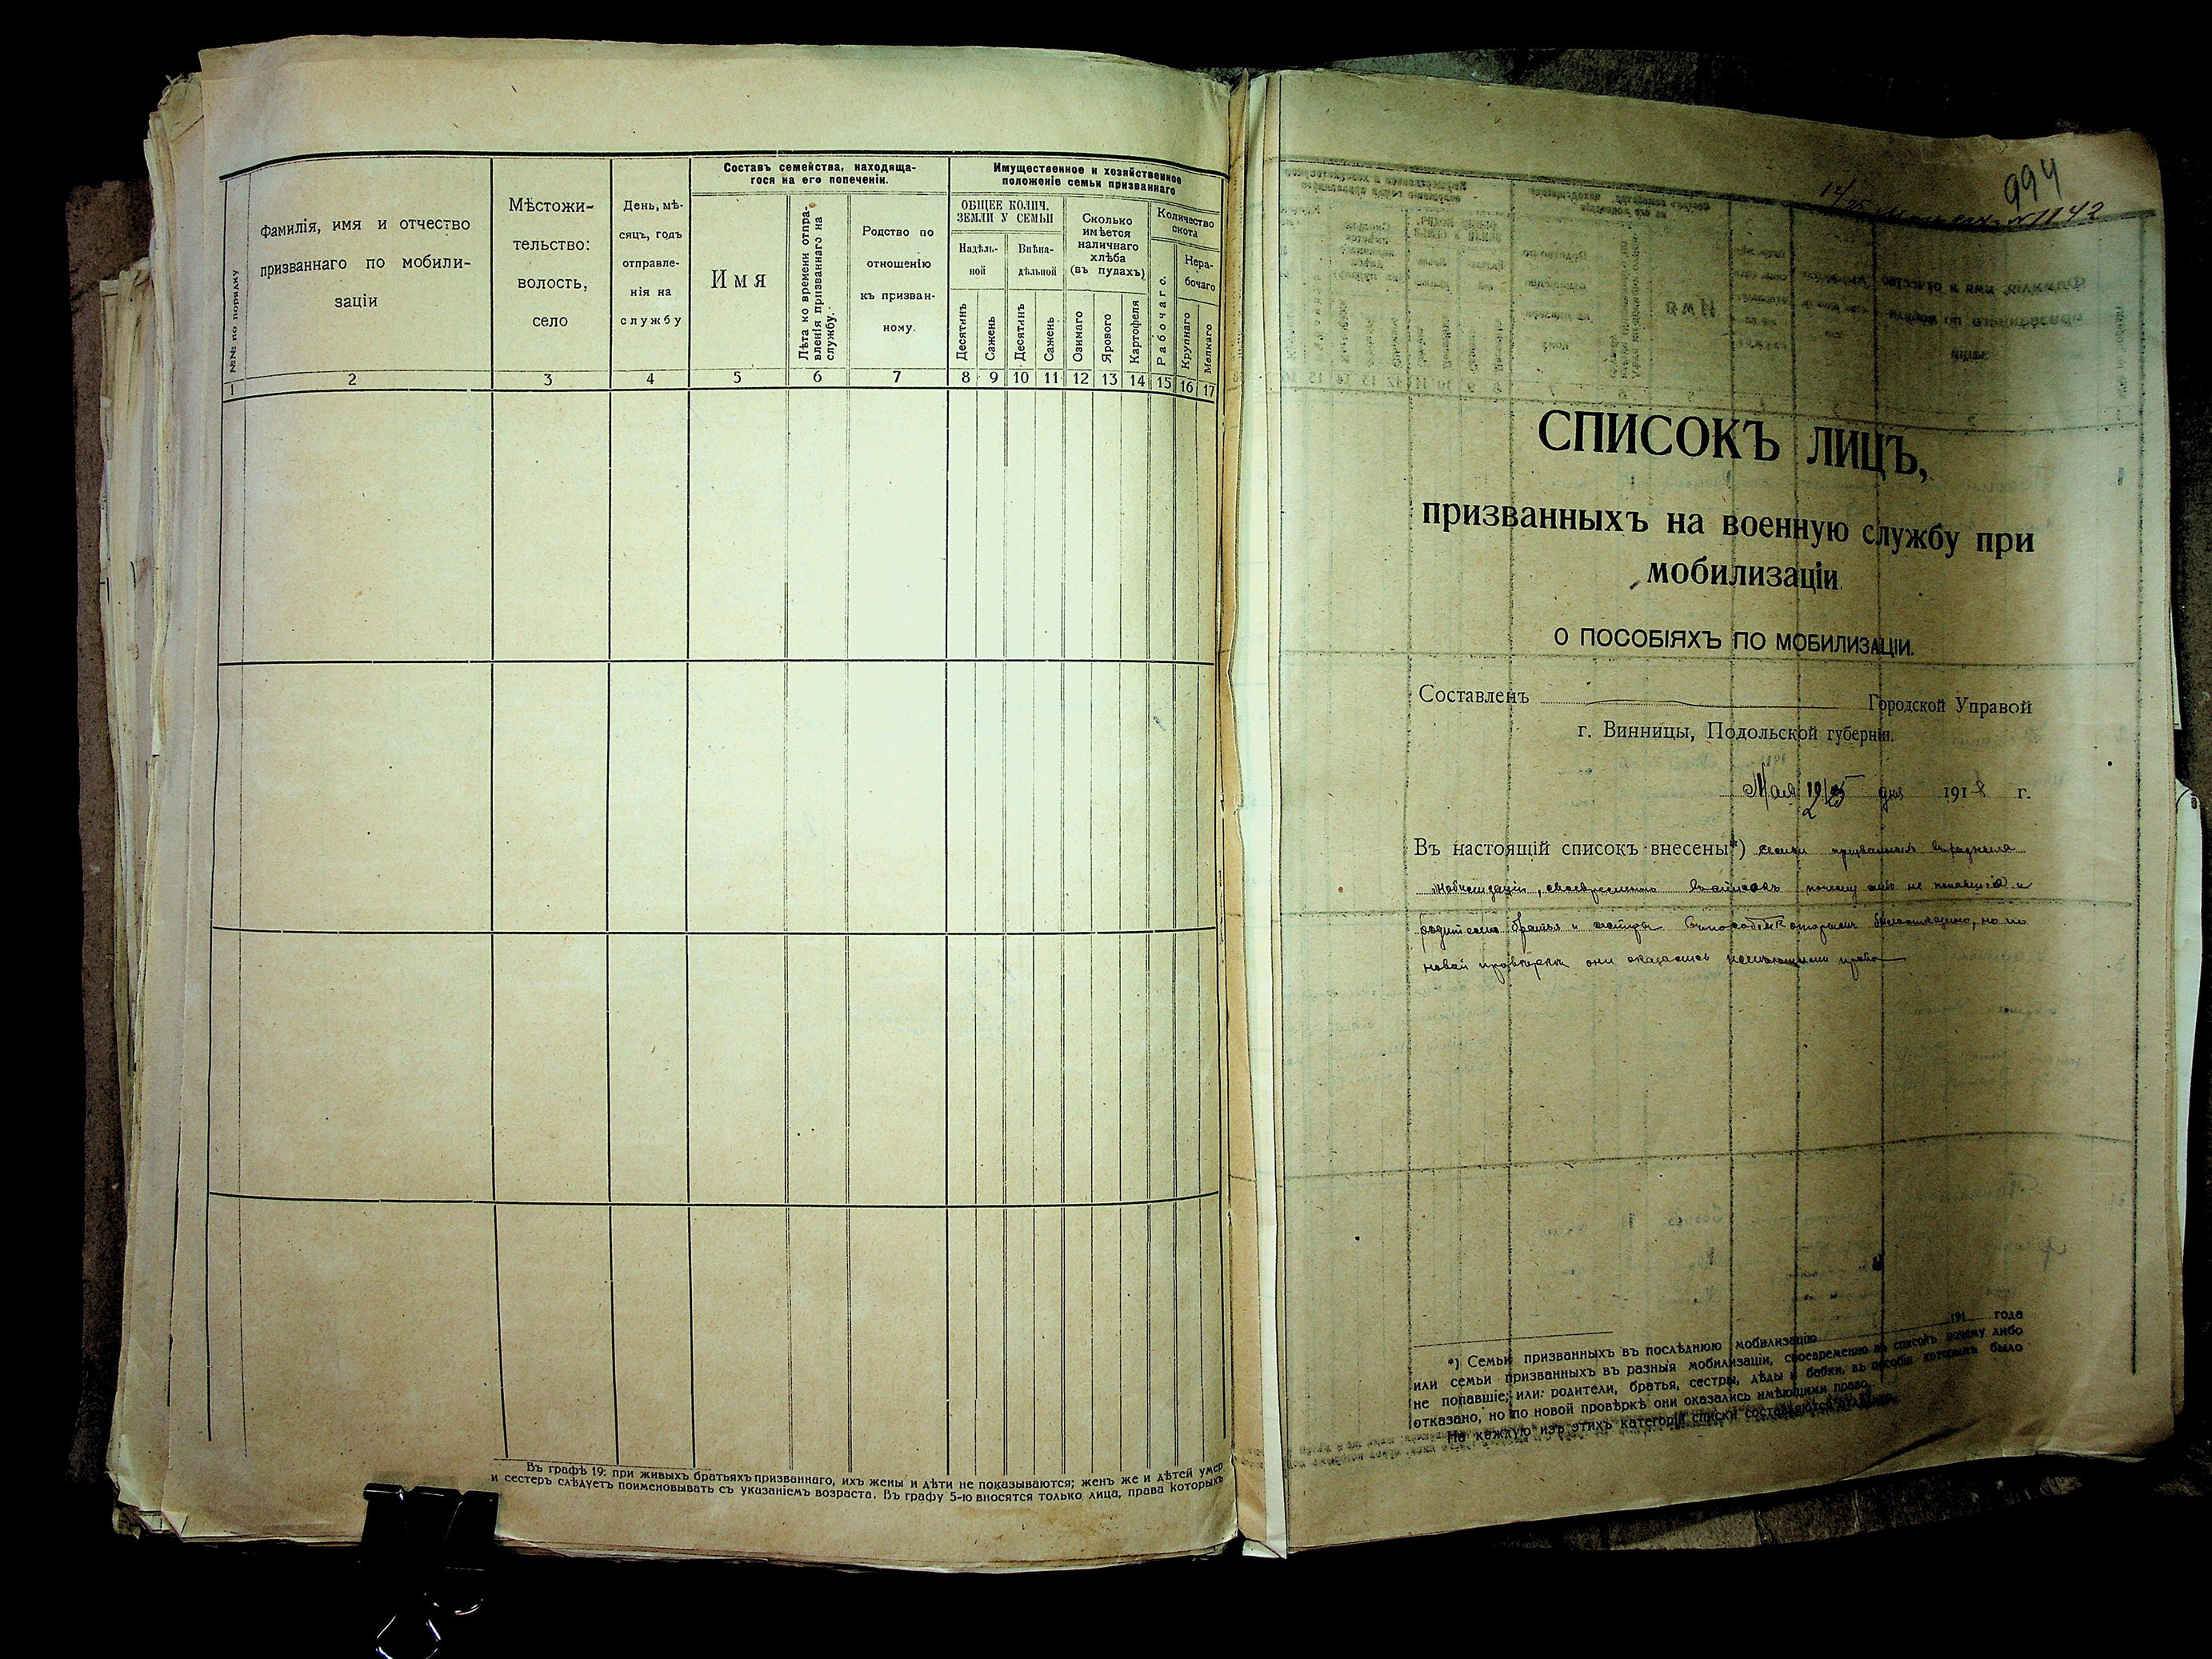 Составъ семейства, находяща-
гося на его попеченіи.
Имущественное и хозяйственное
положеніе семьи призваннаго
№№ по порядку
Фамилія, имя и отчество
призваннаго по мобили-
заціи
Мѣстожи-
тельство:
волость,
село
День, мѣ-
сяцъ, годъ
отправле-
нія на
службу
Имя
Лѣта ко времени отпра-
вленія призваннаго на
службу.
Родство по
отношенію
къ призван-
ному.
ОБЩЕЕ КОЛИЧ.
ЗЕМЛИ У СЕМЬИ
Надѣль-
ной
Внѣна-
дѣльной
Десятинъ
Сажень
Десятинъ
Сажень
Сколько
имѣется
наличнаго
хлѣба
(въ пудахъ)
Озимаго
Ярового
Картофеля
Количество
скота
Рабочаго.
Нера-
бочаго
Крупнаго
Мелкаго
1 2 3 4 5 6 7 8 9 10 11 12 13 14 15 16 17
Въ графѣ 19: при живыхъ братьяхъ призваннаго, ихъ жены и дѣти не показываются; женъ же и дѣтей умер
и сестеръ слѣдуетъ поименовывать съ указаніемъ возраста. Въ графу 5-ю вносятся только лица, права которыхъ
994
12/25 № 1142
СПИСОКЪ ЛИЦЪ,
призванныхъ на военную службу при
мобилизаціи
О ПОСОБІЯХЪ ПО МОБИЛИЗАЦІИ.
Составленъ Городской Управой
г. Винницы, Подольской губерніи.
Мая 12/25 дня 1918 г.
Въ настоящій список внесены*) семьи призванныхъ въ разныя
мобилизаціи, своевременно въ списокъ почему либо не попавшія и
родители братья и сестры которымъ было отказано, но по
новой провѣркѣ они оказались имѣющими право
*) Семьи призванныхъ въ послѣднюю мобилизацію 191 года
или семьи призванныхъ въ разныя мобилизаціи, своевременно въ списокъ почему либо
не попавшіе; или: родители, братья, сестры, дѣды и бабки, въ пособіи которымъ было
отказано, но по новой провѣркѣ они оказались имѣющими право.
На каждую изъ этихъ категорій списки составляются отдѣльно.